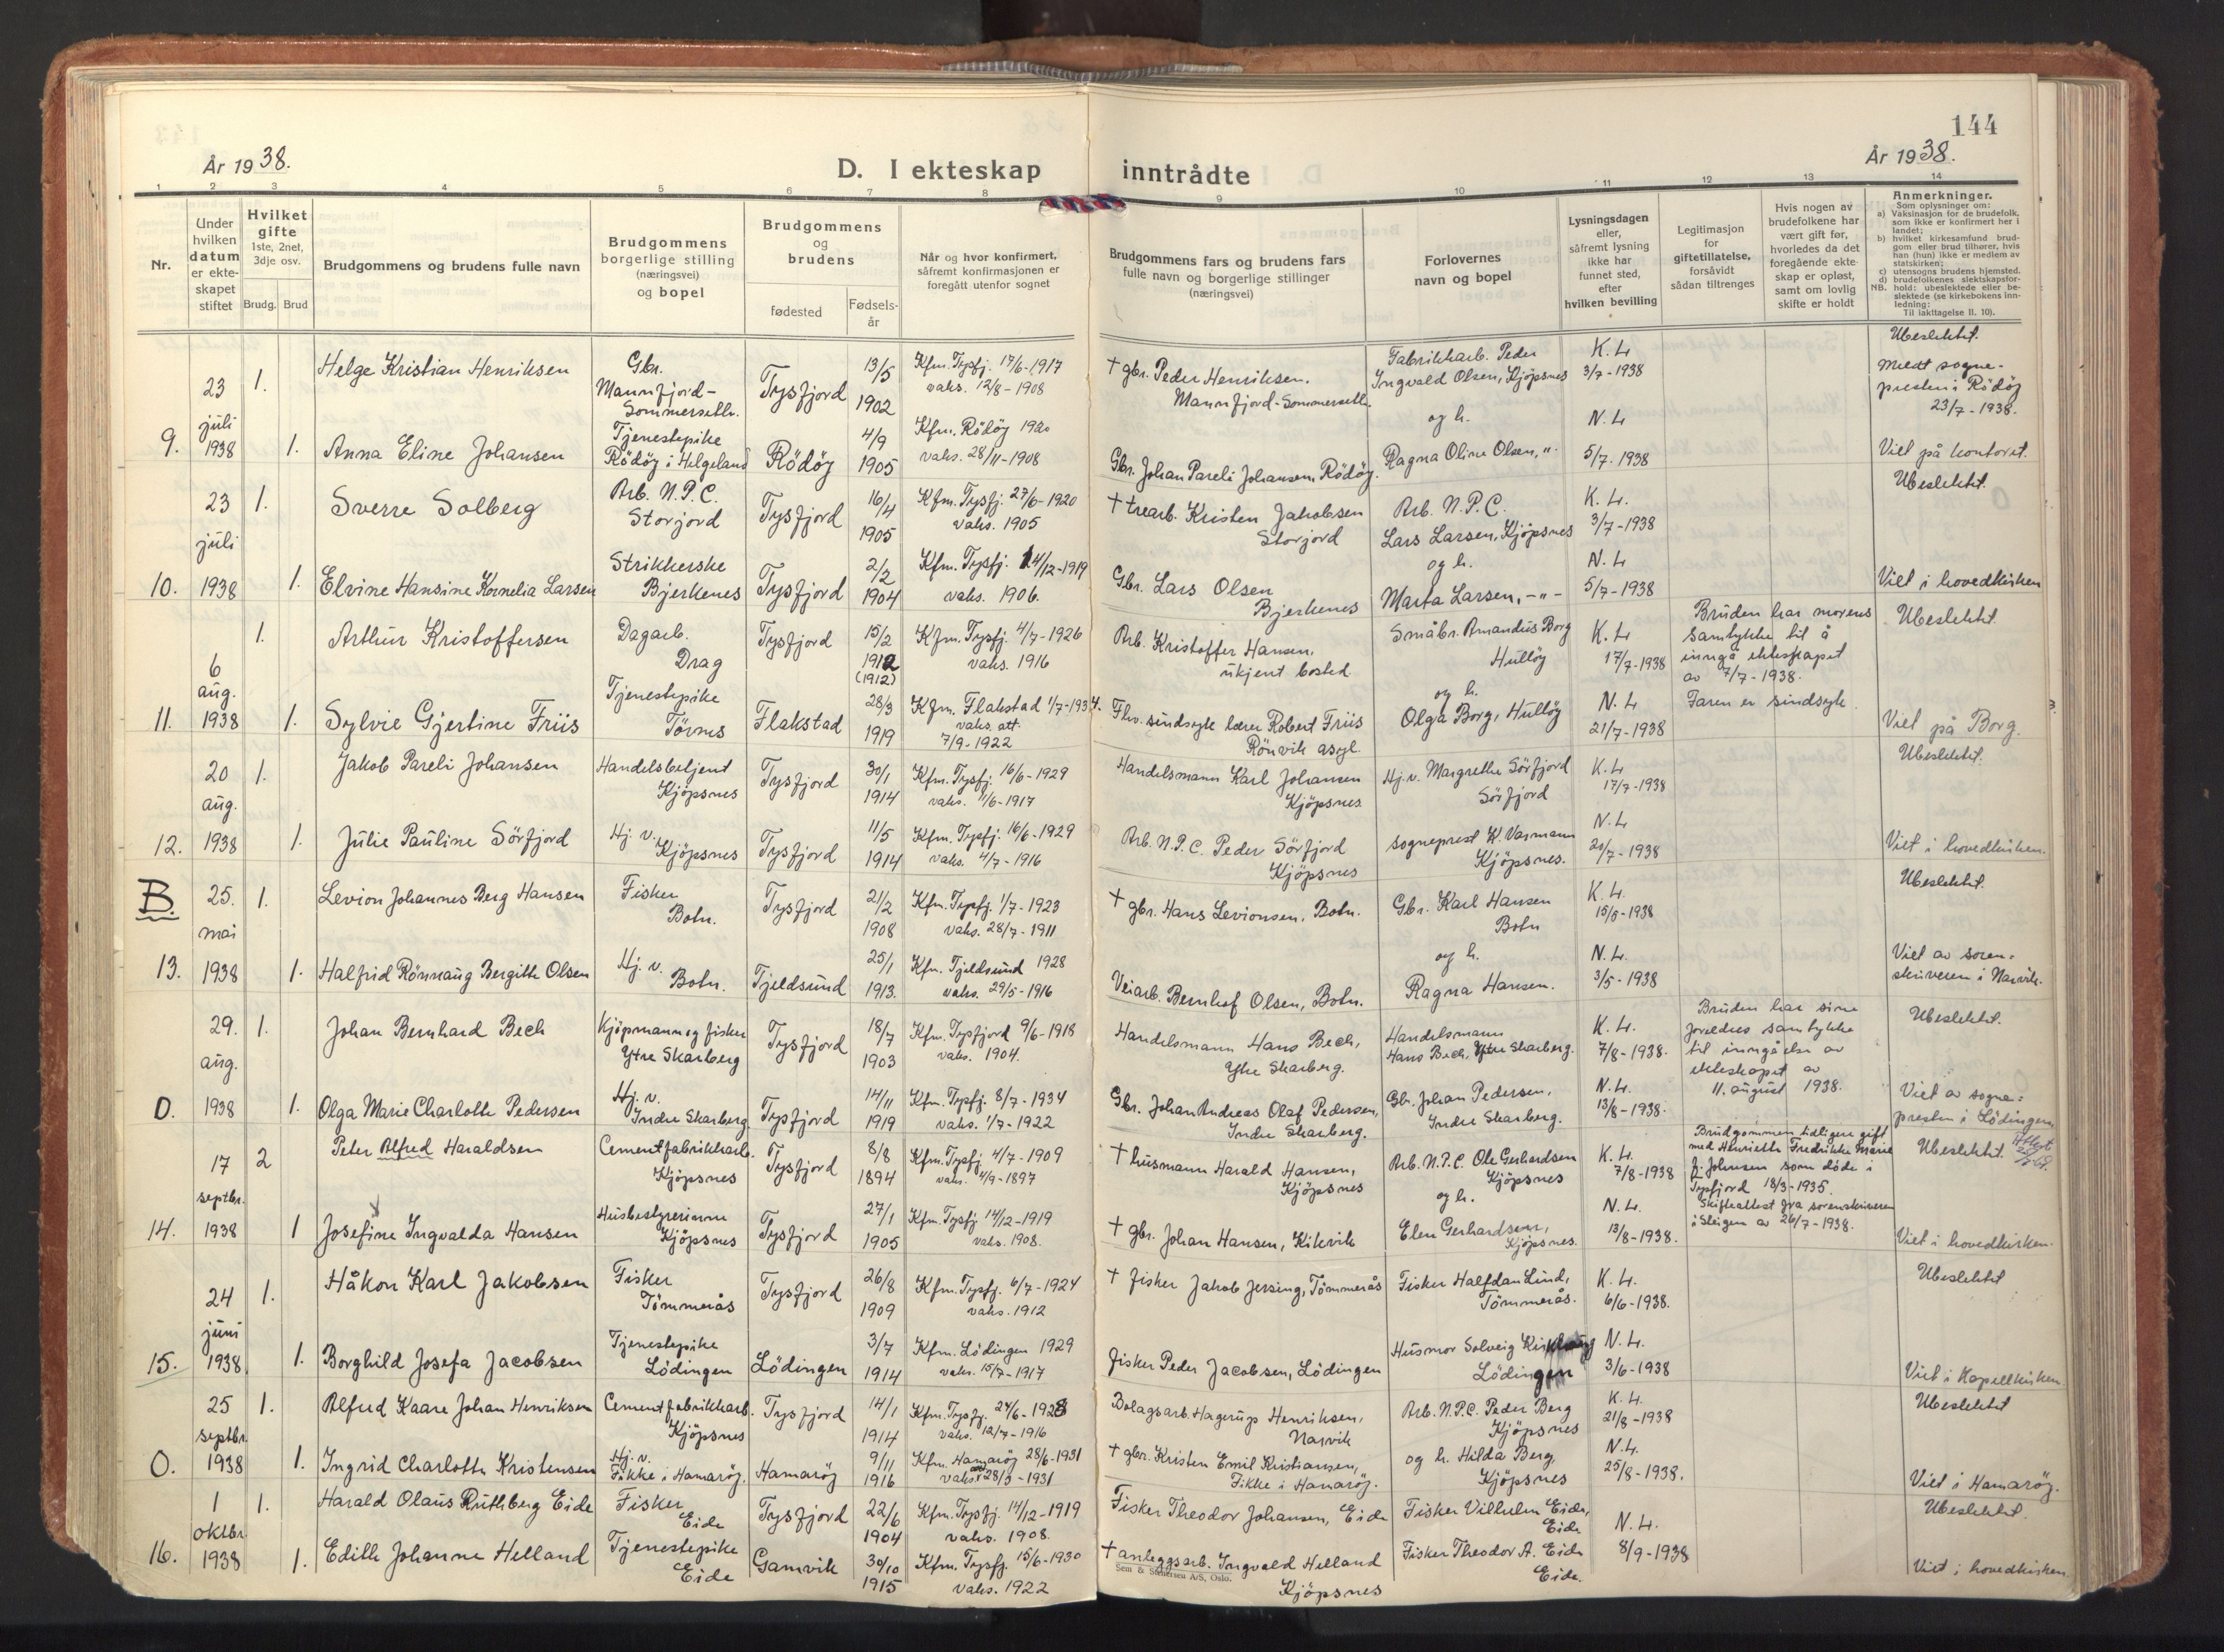 144
År 1938.
År 1938.
D. I ekteskap inntrådte
1 2 3 4 5 6 7 8 9 10 11 12 13 14
Nr.
Under
hvilken
datum
er ekte-
skapet
stiftet
Hvilket
gifte
1ste, 2net,
3dje osv.
Brudg. Brud
Brudgommens og brudens fulle navn
Brudgommens
borgerlige stilling
(næringsvei)
og bopel
Brudgommens
og
brudens
fødested
Fødsels-
år
Når og hvor konfirmert,
såfremt konfirmasjonen er
foregått utenfor sognet
Brudgommens fars og brudens fars
fulle navn og borgerlige stillinger
(næringsvei)
Forlovernes
navn og bopel
Lysningsdagen
eller,
såfremt lysning
ikke har
funnet sted,
efter
hvilken bevilling
Legitimasjon
for
giftetillatelse,
forsåvidt
sådan tiltrenges
Hvis nogen av
brudefolkene har
vært gift før,
hvorledes da det
foregående ekte-
skap er opløst,
samt om lovlig
skifte er holdt
Anmerkninger.
Som oplysninger om:
a) Vaksinasjon for de brudefolk,
som ikke er konfirmert her i
landet;
b) hvilket kirkesamfund brud-
gom eller brud tilhører, hvis
han (hun) ikke er medlem av
statskirken;
c) utensogns brudens hjemsted.
d) brudefolkenes slektskapsfor-
NB. hold: ubeslektede eller be-
slektede (se kirkebokens inn-
ledning:
Til iakttagelse II. 10).
9.
23
juli
1938
1.
Helge Kristian Henriksen
Gbr.
Mannfjord-
Sommerseth.
Tysfjord
13/5
1902
Kfm. Tysfj. 17/6-1917
vaks. 12/8-1908
† gbr. Peder Henriksen.
Mannfjord-Sommerseth.
Fabrikkarb. Peder
Ingvald Olsen, Kjöpsnes
og h.
K. L.
3/7-1938
Ubeslektet.
Meldt sogne-
presten i Rödöy
23/7-1938.
1.
Anna Eline Johansen
Tjenestepike
Rödöy i Helgeland
Rödöy
4/9
1905
Kfm. Rödöy 1920
vaks. 28/11-1908
Gbr. Johan Pareli Johansen, Rödöy.
Ragna Oline Olsen, "
N. L
5/7-1938
Viet på kontoret.
10.
23
juli
1938
1.
Sverre Solberg
Arb. N.P.C.
Storjord
Tysfjord
16/4
1905
Kfm. Tysfj. 27/6-1920
vaks. 1905
† trearb. Kristen Jakobsen
Storjord
Arb. N.P.C.
Lars Larsen, Kjöpsnes
og h.
K. L.
3/7-1938
Ubeslektet.
1.
Elvine Hansine Kornelia Larsen
Strikkerske
Bjerkenes
Tysfjord
2/2
1904
Kfm. Tysfj. 14/12-1919
vaks. 1906.
Gbr. Lars Olsen
Bjerkenes
Marta Larsen, -"-
N. L
5/7-1938
Viet i hovedkirken
11.
6
aug.
1938
1.
Arthur Kristoffersen
Dagarb.
Drag
Tysfjord
15/2
1912
(1912)
Kfm. Tysfj. 4/7-1926
vaks. 1916
Arb. Kristoffer Hansen,
ukjent bosted.
Småbr. Amandus Borg
Hulløy
og h.
K. L
17/7-1938
Bruden har morens
samtykke til å
inngå ekteskapet
av 7/7-1938.
Faren er sindsyk.
Ubeslektet.
1.
Sylvie Gjertine Friis
Tjenestepike
Törnes
Flakstad
28/3
1919
Kfm. Flakstad 1/7-1934.
vaks. att.
7/9-1922
Fhv. sindsyk lærer Robert Friis
Rönvik asyl.
Olga Borg, Hulløy
N. L
21/7-1938
Viet på Borg.
12.
20
aug.
1938
1.
Jakob Pareli Johansen
Handelsbetjent
Kjöpsnes
Tysfjord
30/1
1914
Kfm. Tysfj. 16/6-1929
vaks. 1/6-1917
Handelsmann Karl Johansen
Kjöpsnes
Hj.v. Margrethe Sörfjord
Sörfjord
K. L
17/7-1938
Ubeslektet.
1.
Julie Pauline Sörfjord
Hj. v.
Kjöpsnes
Tysfjord
11/5
1914
Kfm. Tysfj. 16/6-1929
vaks. 4/7-1916
Arb. N.P.C. Peder Sörfjord
Kjöpsnes
sogneprest K. Varmann
Kjöpsnes.
N. L
20/7-1938
Viet i hovedkirken.
B.
13.
25.
mai
1938
1.
Levion Johannes Berg Hansen
Fisker
Botn.
Tysfjord
21/2
1908
Kfm. Tysfj. 1/7-1923
vaks. 28/7-1911
† gbr. Hans Levionsen, Botn.
Gbr. Karl Hansen
Botn
og h.
K. L.
15/5-1938
Ubeslektet.
1.
Halfrid Rönnaug Bergitte Olsen
Hj. v.
Botn.
Tjeldsund
25/1
1913.
Kfm. Tjeldsund 1928
vaks. 29/5-1916
Veiarb. Bernhof Olsen, Botn.
Ragna Hansen.
N. L.
3/5-1938
Viet av soren-
skriveren i Narvik.
0.
29.
aug.
1938
1.
Johan Bernhard Bech
Kjöpmann og fisker
Ytre Skarberg
Tysfjord
18/7
1903
Kfm. Tysfjord 9/6-1918
vaks. 1904.
Handelsmann Hans Bech,
Ytre Skarberg.
Handelsmann
Hans Bech, Ytre Skarberg.
K. L.
7/8-1938.
Bruden har sine
foreldres samtykke
til inngåelse av
ekteskapet av
11. august 1938.
Ubeslektet.
1.
Olga Marie Charlotte Pedersen
Hj. v.
Indre Skarberg
Tysfjord
14/11
1919
Kfm. Tysfj. 8/7-1934
vaks. 1/7-1922
Gbr. Johan Andreas Olaf Pedersen,
Indre Skarberg.
Gbr. Johan Pedersen,
Indre Skarberg.
N. L.
13/8-1938.
Viet av sogne-
presten i Lödingen
14.
17
septbr.
1938
2
Peter Alfred Haraldsen
Cementfabrikkarb.
Kjöpsnes
Tysfjord
8/8
1894
Kfm. Tysfj. 4/7-1909
vaks. 4/9-1897
† husmann Harald Hansen,
Kjöpsnes
Arb. N.P.C. Ole Gerhardsen
Kjöpsnes
og h.
K. L.
7/8-1938
Brudgommen tidligere gift
med Henriette Fredrikke Marie
f. Johnsen som döde i
Tysfjord 18/3-1935.
Skifteattest fra sorenskriveren
i Steigen av 26/7-1938.
Ubeslektet.
Attest
1
Josefine Ingvalda Hansen
Husbestyrerinne
Kjöpsnes
Tysfjord
27/1
1905
Kfm. Tysfj 14/12-1919
vaks. 1908.
† gbr. Johan Hansen, Kikvik
Elen Gerhardsen,
Kjöpsnes.
N. L.
13/8-1938.
Viet i hovedkirken.
15.
24
juni
1938
1.
Håkon Karl Jakobsen
Fisker
Tömmerås
Tysfjord
26/8
1909
Kfm. Tysfj. 6/7-1924
vaks. 1912
† fisker Jakob Jersing, Tömmerås
Fisker Halfdan Lind,
Tömmerås.
K. L.
6/6-1938.
Ubeslektet
1.
Borghild Josefa Jacobsen
Tjenestepike
Lödingen
Lödingen
3/7
1914
Kfm. Lödingen 1929
vaks. 15/7-1917
fisker Peder Jacobsen, Lödingen
Husmor Solveig
Lödingen
N. L.
3/6-1938
Viet i Kapellkirken
0.
25
septbr.
1938
1.
Alfred Kaare Johan Henriksen
Cementfabrikkarb.
Kjöpsnes
Tysfjord
14/1
1914
Kfm. Tysfj. 24/6-1928
vaks. 12/7-1916
Bolagsarb. Hagerup Henriksen,
Narvik
Arb. N.P.C. Peder Berg
Kjöpsnes
K. L.
21/8-1938
Ubeslektet
1.
Ingrid Charlotte Kristensen
Hj. v.
Fikke i Hamaröy.
Hamaröy
9/11
1916
Kfm. Hamaröy 28/6-1931
vaks. 28/5-1931
† gbr. Kristen Emil Kristiansen,
Fikke i Hamaröy.
og h. Hilda Berg,
Kjöpsnes
N. L.
25/8-1938.
Viet i Hamaröy.
16.
1
oktbr
1938
1.
Harald Olaus Ruthberg Eide
Fisker
Eide
Tysfjord
22/6
1904
Kfm. Tysfj. 14/12-1919
vaks. 1908.
Fisker Theodor Johansen, Eide
Fisker Vilhelm Eide,
Eide
N. L.
8/9-1938
Ubeslektet.
1.
Edith Johanne Helland
Tjenestepike
Eide
Gamvik
30/10
1915
Kfm. Tysfj. 15/6-1930
vaks. 1922
† anleggsarb. Ingvald Helland
Kjöpsnes
Fisker Theodor A. Eide
Eide.
Viet i hovedkirken
Sem & Stenersen A/S, Oslo.